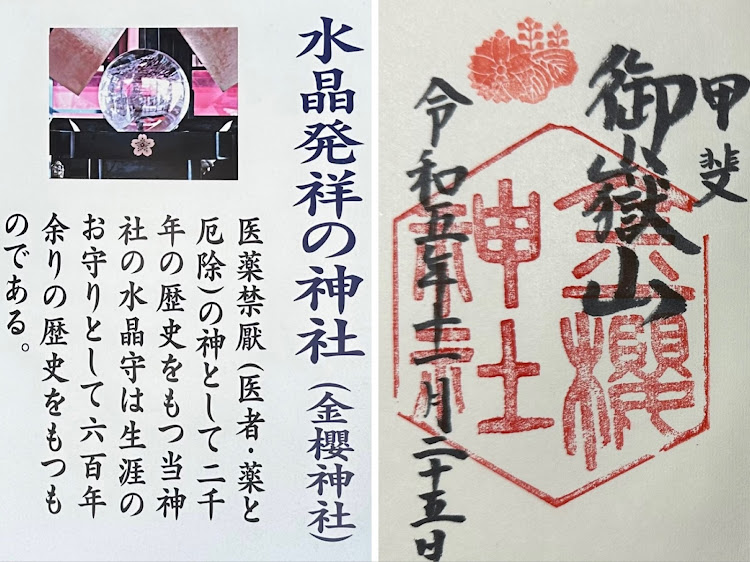 水晶発祥の神社(金櫻神社)
医薬禁厭(医者・薬と
厄除)の神として二千
年の歴史をもつ当神
社の水晶守は生涯の
お守りとして六百年
余りの歴史をもつも
のである。
甲斐
御嶽山
金櫻
神社
令和五年十一月二十五日